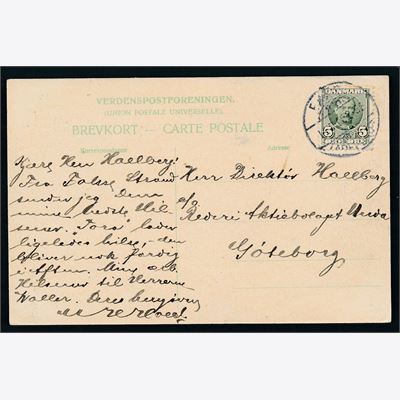 VERDENSPOSTFORENINGEN.
(UNION POSTALE UNIVERSELLE).
BREVKORT – CARTE POSTALE
Korrespondance
Adresse
DANMARK
5
5
Kære Herr Hallberg!
Fra Fakse Strand
sender jeg Dem
mine bedste Hil-
sener. "Tora" lader
ligeledes hilse, den
bliver nok færdig
i Aften. Min
Hilsener til Herrerne
Waller. Deres hengivne
Herr Direktör Hallberg
Rederi Aktiebolaget
Göteborg